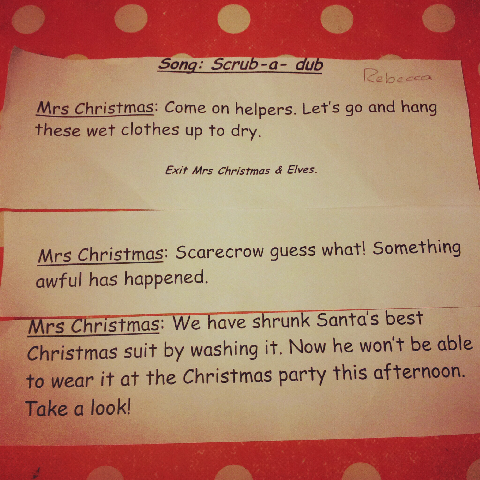 Song: Scrub-a- dub
Rebecca
Mrs Christmas: Come on helpers. Let's go and hang
these wet clothes up to dry.
Exit Mrs Christmas & Elves.
Mrs Christmas: Scarecrow guess what! Something
awful has happened.
Mrs Christmas: We have shrunk Santa's best
Christmas suit by washing it. Now he won't be able
to wear it at the Christmas party this afternoon.
Take a look!